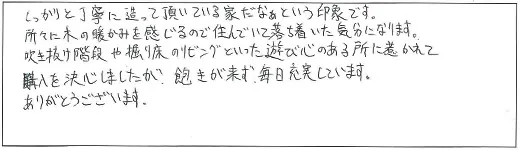 しっかりと丁寧に造って頂いている家だなぁという印象です。
所々に木の暖かみを感じるので住んでいて落ち着いた気分になります。
吹き抜け階段や掘り床のリビングといった遊び心のある所に惹かれて
購入を決心しましたが、飽きが来ず、毎日充実しています。
ありがとうございます。